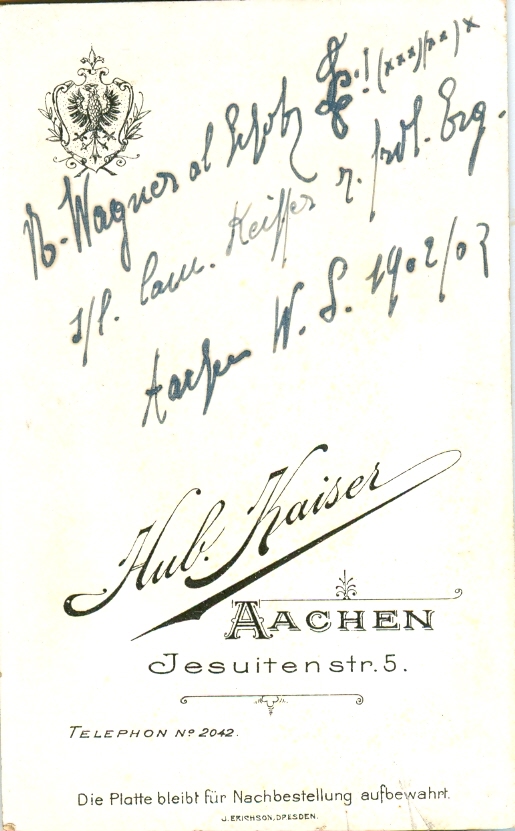 R. Wagner al (xxx)(xx)x
s/l. Cam. Keiffer z. frdl. Erg.
Aachen W. S. 1902/03
Hub. Kaiser
AACHEN
Jesuitenstr. 5.
TELEPHON No 2042.
Die Platte bleibt für Nachbestellung aufbewahrt.
J. ERICHSON, DRESDEN.